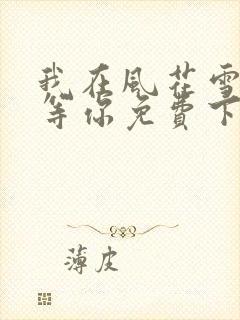 我在風花雪
等你免費下
薄皮